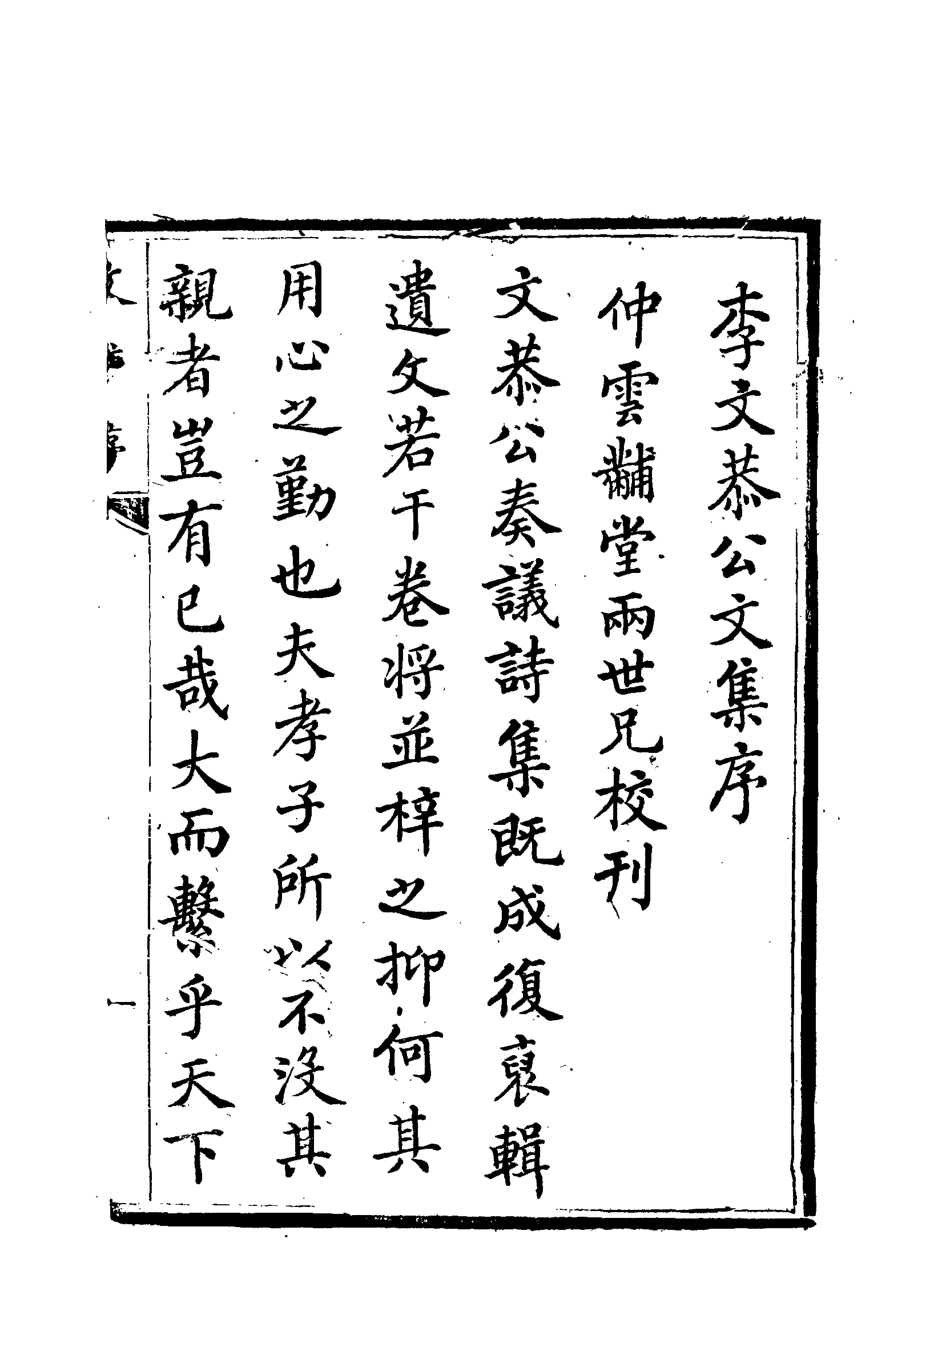 李文恭公文集序
仲雲黼堂兩世兄校刊
文恭公奏議詩集既成復裒輯
遺文若干卷將並梓之抑何其
用心之勤也夫孝子所以不没其
親者豈有已哉大而繫乎天下
一